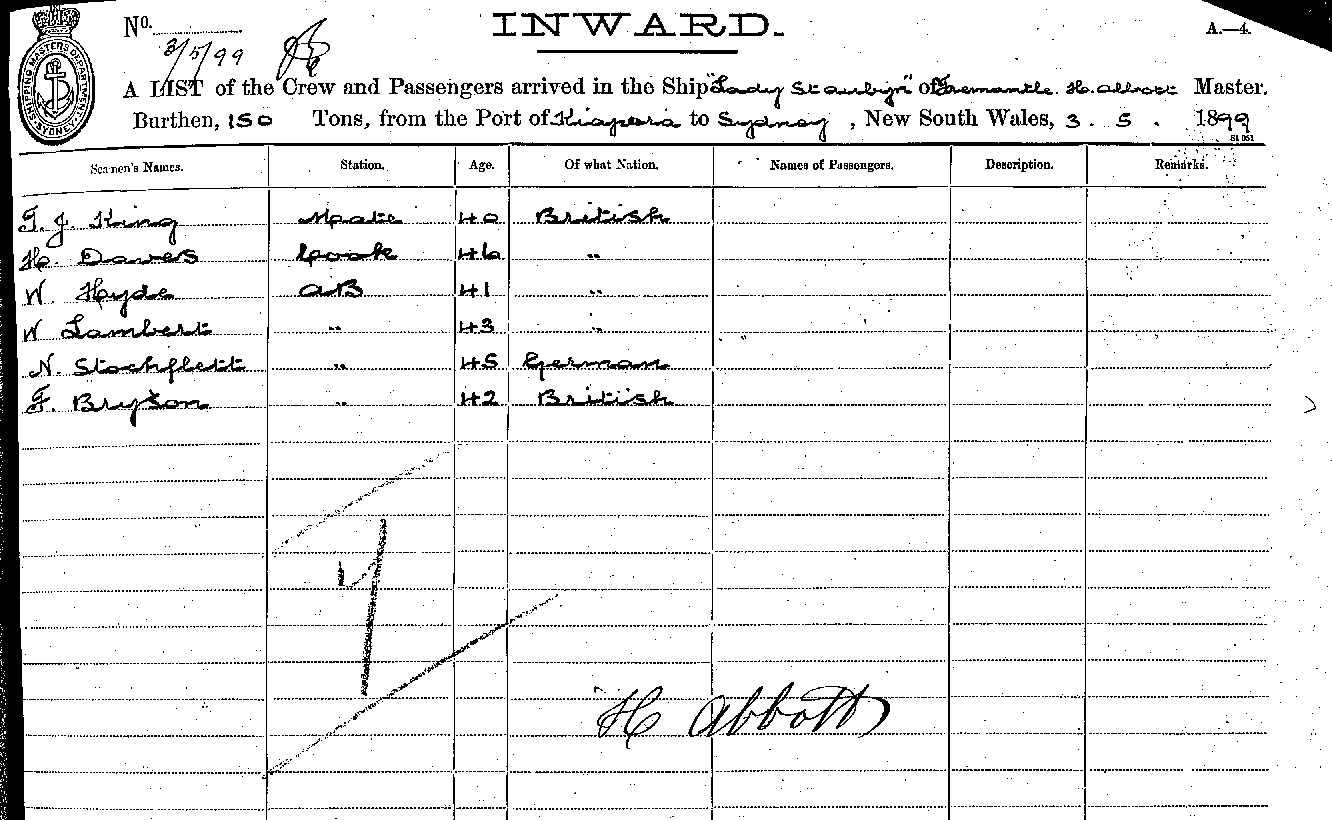 No.
INWARD.
A.—4.
3/5/99
SHIPPING MASTERS DEPARTMENT SYDNEY
A LIST of the Crew and Passengers arrived in the Ship "Lady St of Fremantle. H. Abbott Master,
Burthen, 150 Tons, from the Port of to Sydney, New South Wales, 3. 5. 1899
Seamen's Names. Station. Age. Of what Nation. Names of Passengers. Description. Remarks.
T. J. King Mate 40 British
H. Dawes Cook 46 "
W. Hyde AB 41 "
W Lambert " 43 "
N. Stockflett " 45 German
F. Bryson " 42 British
H Abbott